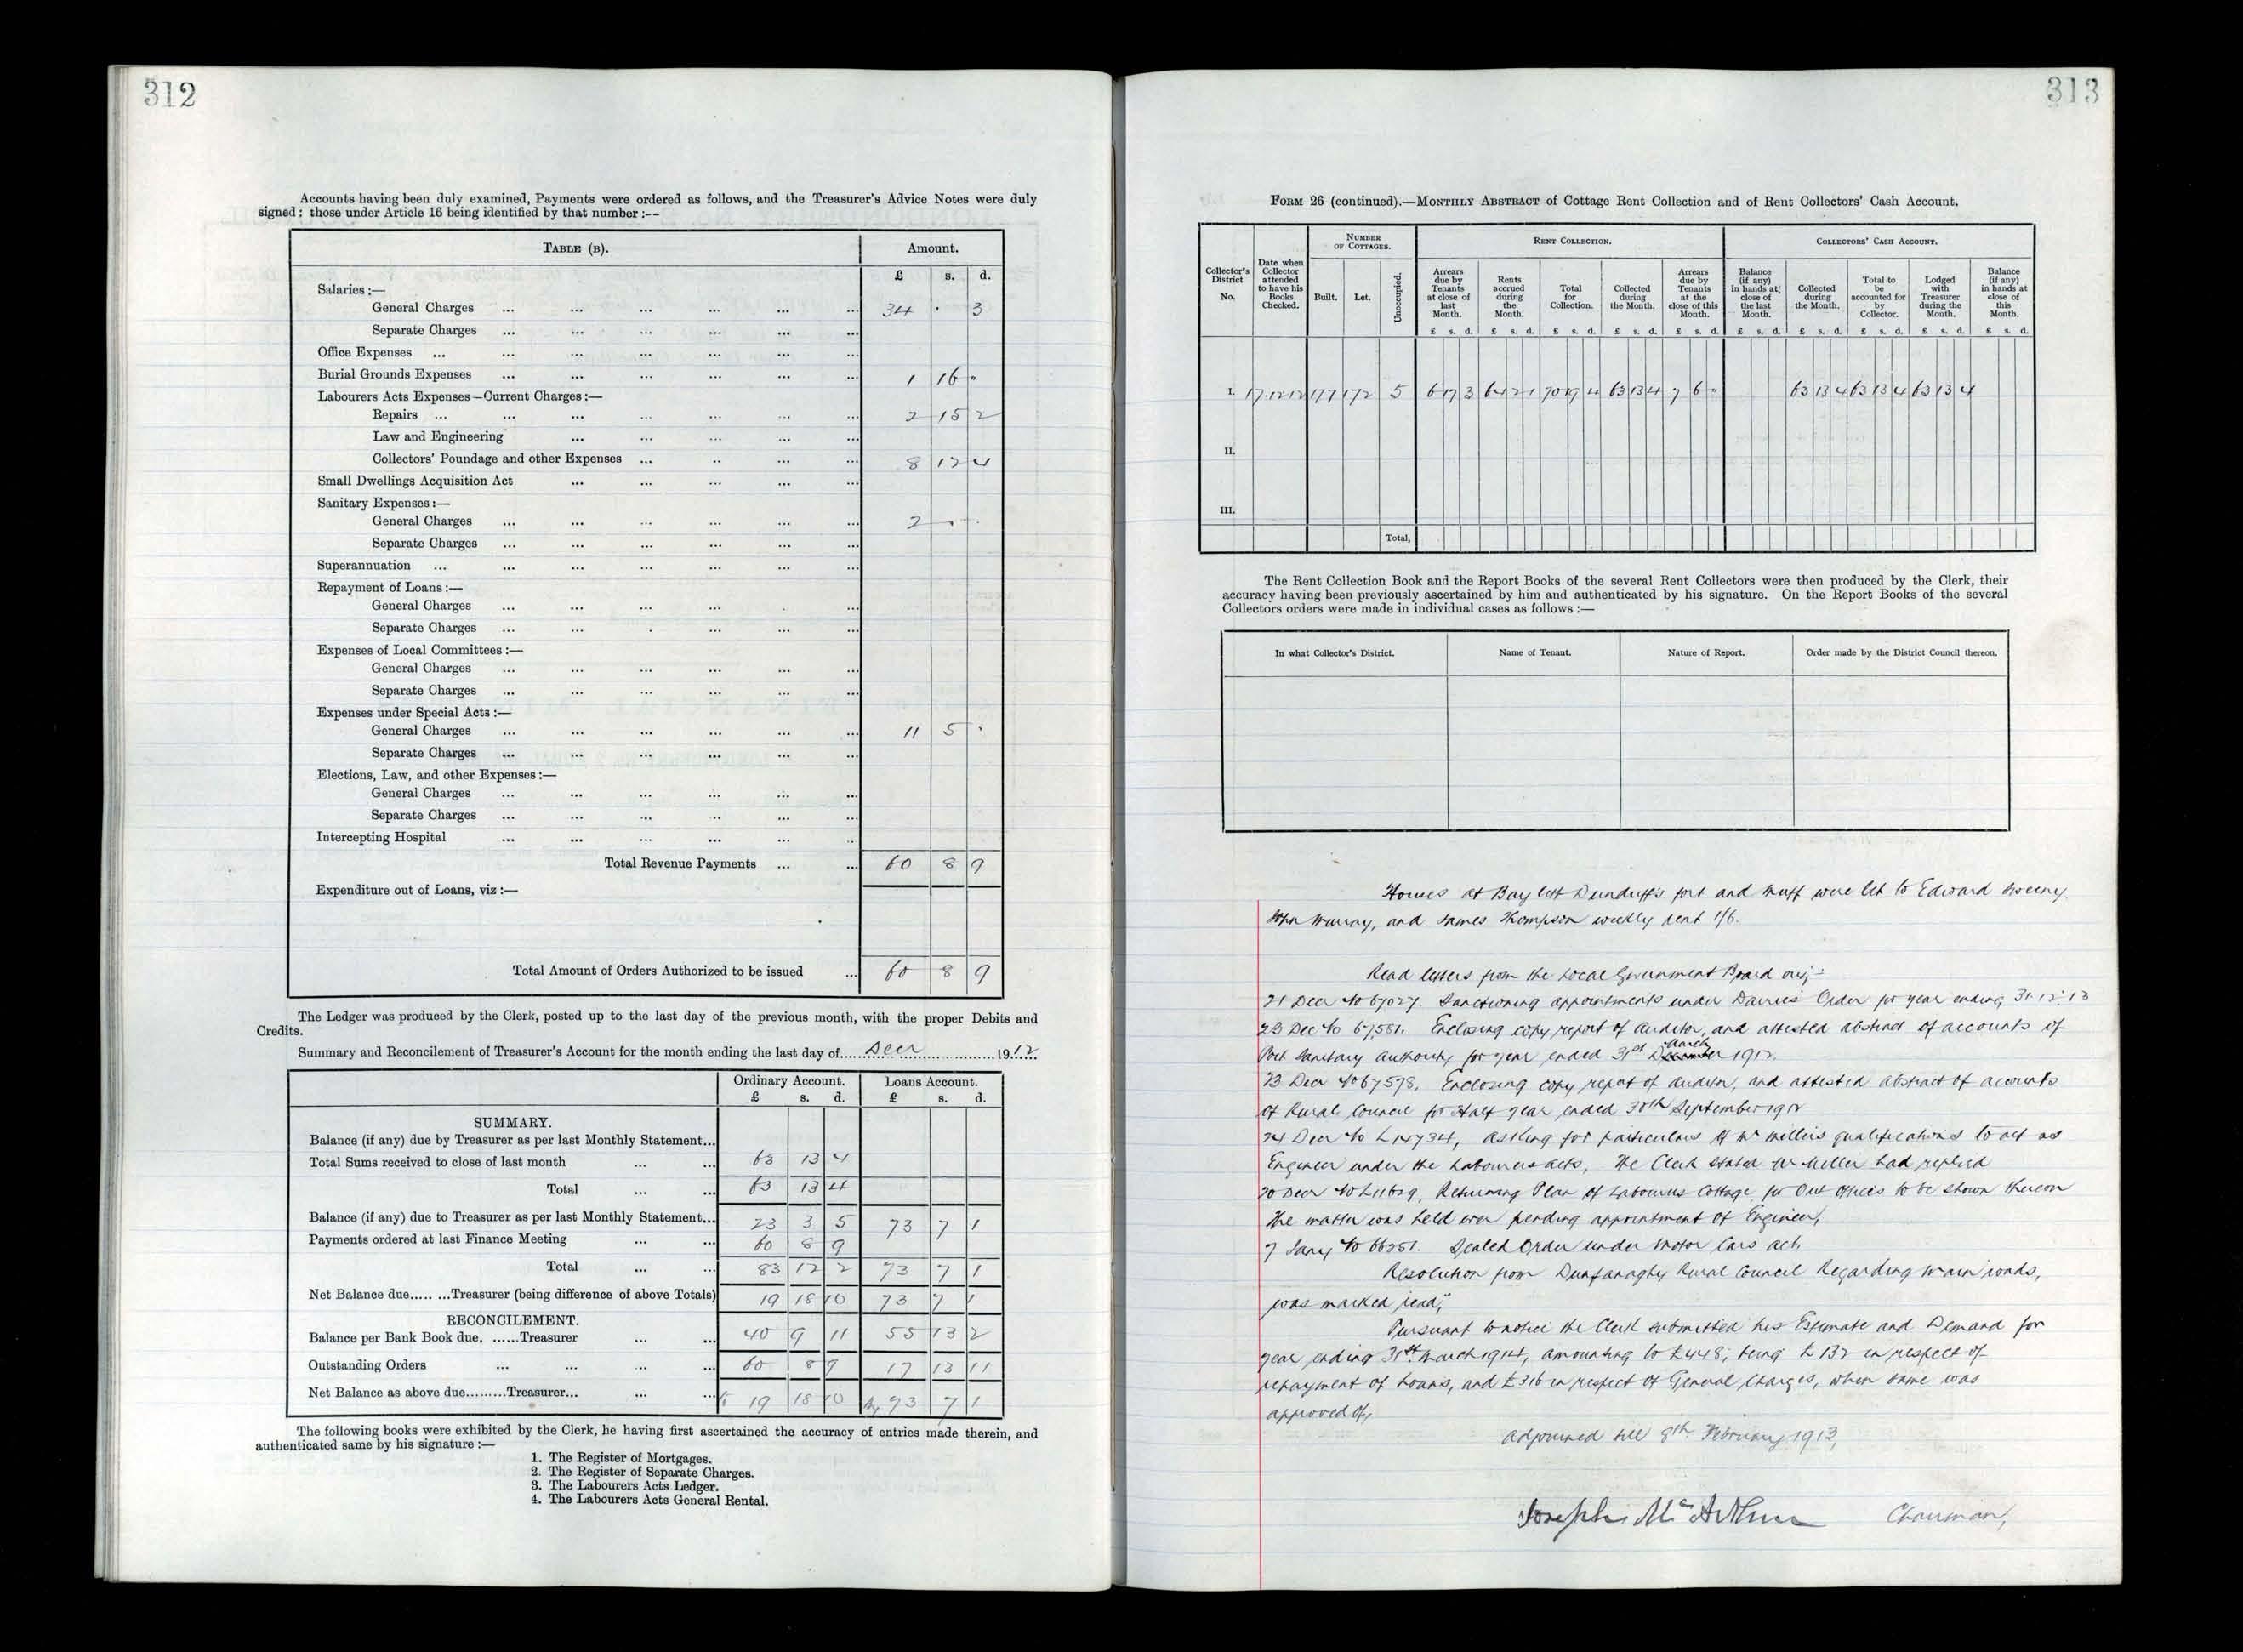 312
Accounts having been duly examined, Payments were ordered as follows, and the Treasurer's Advice Notes were duly
signed: those under Article 16 being identified by that number:--
TABLE (B). Amount.
£ s. d.
Salaries:—
General Charges ... 34 · 3
Separate Charges ...
Office Expenses ...
Burial Grounds Expenses ... 1 16 "
Labourers Acts Expenses—Current Charges:—
Repairs ... 2 15 2
Law and Engineering ...
Collectors' Poundage and other Expenses ... 8 12 4
Small Dwellings Acquisition Act ...
Sanitary Expenses:—
General Charges ... 2 · ·
Separate Charges ...
Superannuation ...
Repayment of Loans:—
General Charges ...
Separate Charges ...
Expenses of Local Committees:—
General Charges ...
Separate Charges ...
Expenses under Special Acts:—
General Charges ... 11 5 ·
Separate Charges ...
Elections, Law, and other Expenses:—
General Charges ...
Separate Charges ...
Intercepting Hospital ...
Total Revenue Payments ... 60 8 9
Expenditure out of Loans, viz:—
Total Amount of Orders Authorized to be issued ... 60 8 9
The Ledger was produced by the Clerk, posted up to the last day of the previous month, with the proper Debits and
Credits.
Summary and Reconcilement of Treasurer's Account for the month ending the last day of Decr 1912
Ordinary Account. Loans Account.
£ s. d. £ s. d.
SUMMARY.
Balance (if any) due by Treasurer as per last Monthly Statement...
Total Sums received to close of last month ... 63 13 4
Total ... 63 13 4
Balance (if any) due to Treasurer as per last Monthly Statement... 23 3 5 73 7 1
Payments ordered at last Finance Meeting ... 60 8 9
Total ... 83 12 2 73 7 1
Net Balance due........Treasurer (being difference of above Totals) 19 18 10 73 7 1
RECONCILEMENT.
Balance per Bank Book due.......Treasurer ... 40 9 11 55 13 2
Outstanding Orders ... 60 8 9 17 13 11
Net Balance as above due.........Treasurer... 19 18 10 73 7 1
The following books were exhibited by the Clerk, he having first ascertained the accuracy of entries made therein, and
authenticated same by his signature:—
1. The Register of Mortgages.
2. The Register of Separate Charges.
3. The Labourers Acts Ledger.
4. The Labourers Acts General Rental.
313
FORM 26 (continued).—MONTHLY ABSTRACT of Cottage Rent Collection and of Rent Collectors' Cash Account.
Collector's District No. Date when Collector attended to have his Books Checked. NUMBER OF COTTAGES. RENT COLLECTION. COLLECTORS' CASH ACCOUNT.
Built. Let. Unoccupied. Arrears due by Tenants at close of last Month. Rents accrued during the Month. Total for Collection. Collected during the Month. Arrears due by Tenants at the close of this Month. Balance (if any) in hands at close of the last Month. Collected during the Month. Total to be accounted for by Collector. Lodged with Treasurer during the Month. Balance (if any) in hands at close of this Month.
£ s. d. £ s. d. £ s. d. £ s. d. £ s. d. £ s. d. £ s. d. £ s. d. £ s. d. £ s. d.
I. 17.12.12 177 172 5 6 17 3 64 2 1 70 19 4 63 13 4 7 6 " 63 13 4 63 13 4 63 13 4
II.
III.
Total,
The Rent Collection Book and the Report Books of the several Rent Collectors were then produced by the Clerk, their
accuracy having been previously ascertained by him and authenticated by his signature. On the Report Books of the several
Collectors orders were made in individual cases as follows:—
In what Collector's District. Name of Tenant. Nature of Report. Order made by the District Council thereon.
Houses at Baylett Dunduff's fort and Muff were let to Edward Sweeny
John Murray, and James Thompson weekly rent 1/6.
Read letters from the Local Government Board viz;-
21 Decr No 67027. Sanctioning appointments under Dairies Order for year ending 31.12.13
23 Dec No 67581. Enclosing copy report of Auditor, and attested abstract of accounts of
Port Sanitary Authority for year ended 31st March 1912.
23 Decr No 67578, Enclosing copy report of Auditor, and attested abstract of accounts
of Rural Council for Half year ended 30th September 1912
24 Decr No asking for particulars of Mr Millers qualifications to act as
Engineer under the Labourers acts, The Clerk stated Mr Miller had replied
20 Decr No Returning Plan of Labourers Cottage for Out offices to be shown thereon
The matter was held over pending appointment of Engineer,
7 Jany No 66251. Sealed Order under Motor Cars act.
Resolution from Dunfanaghy Rural Council Regarding Main roads,
was marked "read",
Pursuant to notice the Clerk submitted his Estimate and Demand for
year ending 31st March 1914, amounting to £448; being £132 in respect of
repayment of Loans, and £316 in respect of General Charges, when same was
approved of,
Adjourned till 8th February 1913,
Joseph McArthur Chairman,